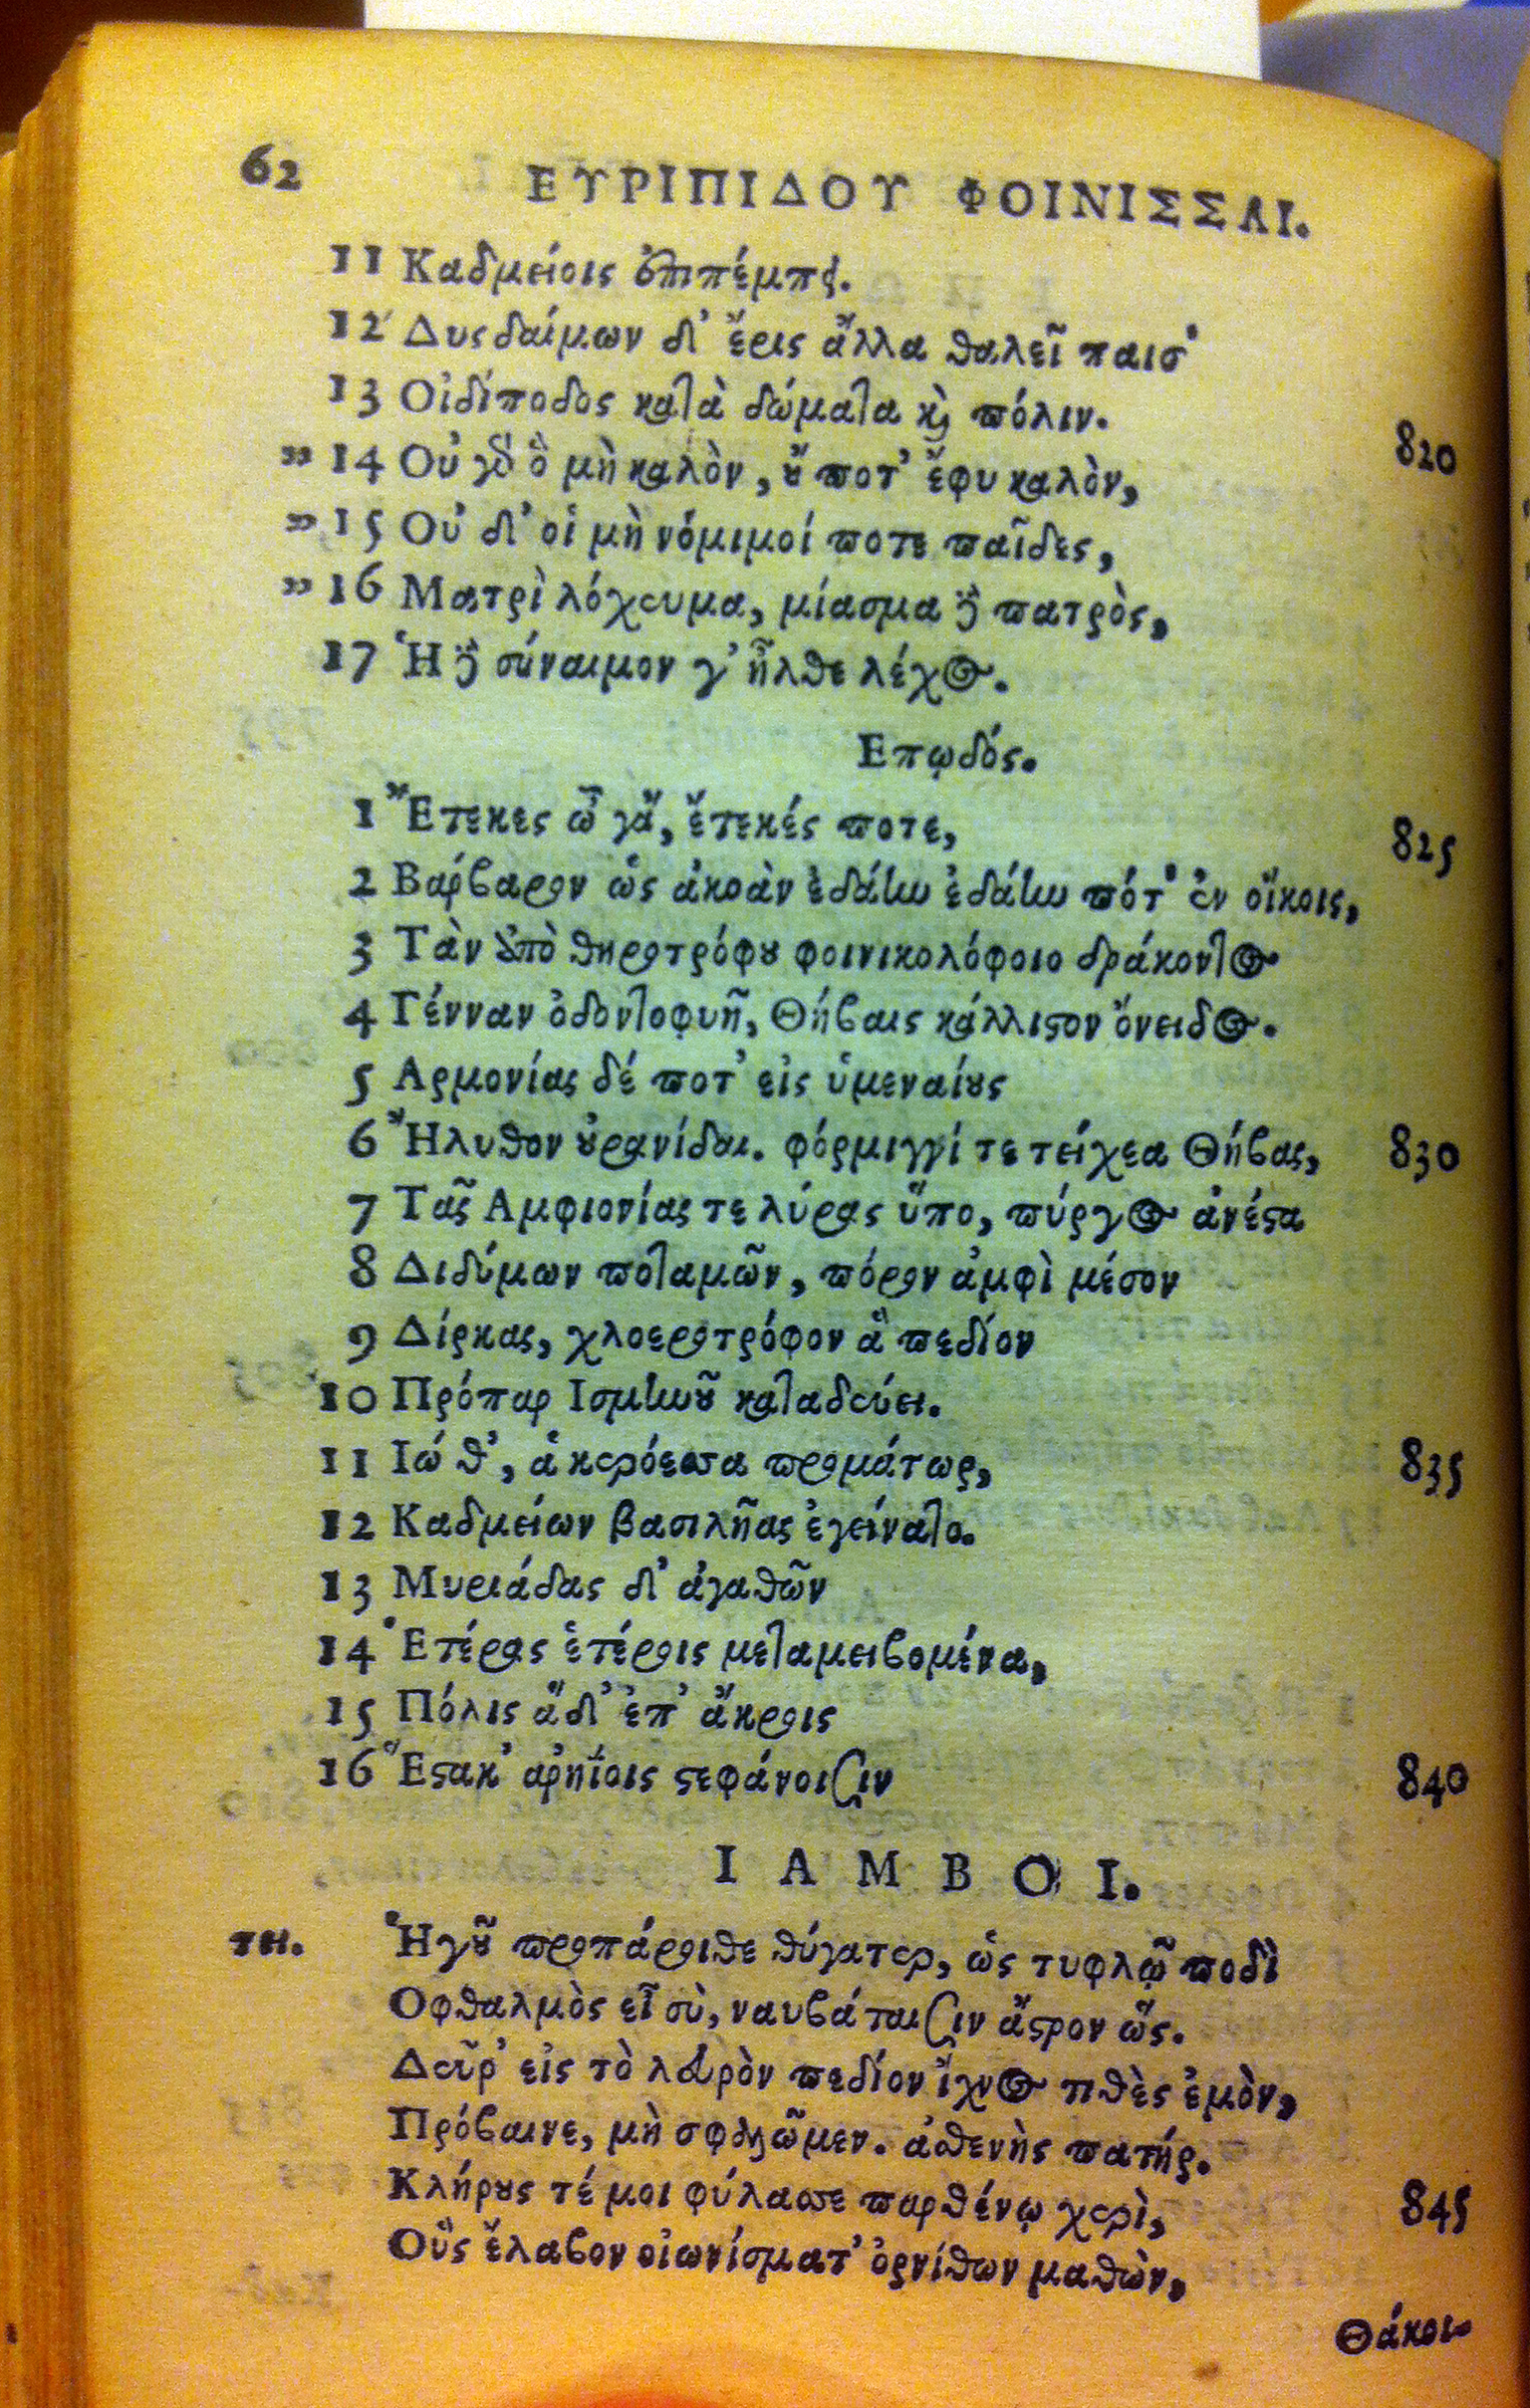 62 ΕΥΡΙΠΙΔΟΥ ΦΟΙΝΙΣΣΑΙ.
11 Καδμείοις ἐπιπέμπει.
12 Δυςδαίμων δ᾽ ἔρις ἄλλα θαλεῖ παισ᾽
13 Οἰδίποδος κατὰ δώματα καὶ πόλιν.
„ 14 Οὐ γὰρ ὃ μὴ καλὸν, οὔ ποτ᾽ ἔφυ καλὸν, 820
„ 15 Οὐ δ᾽ οἱ μὴ νόμιμοί ποτε παῖδες,
„ 16 Ματρὶ λόχευμα, μίασμα δὲ πατρὸς,
17 Ἡ δὲ σύναιμον γ᾽ ἦλθε λέχος.
Επῳδός.
1 Ἔτεκες ὦ γᾶ, ἔτεκές ποτε, 825
2 Βάρβαρον ὡς ἀκοὰν ἐδάην ἐδάην πότ᾽ ἐν οἴκοις,
3 Τὰν ὑπὸ θηροτρόφου φοινικολόφοιο δράκοντος
4 Γένναν ὀδοντοφυῆ, Θήβαις κάλλιστον ὄνειδος.
5 Αρμονίας δέ ποτ᾽ εἰς ὑμεναίους
6 Ἤλυθον οὐρανίδαι. φόρμιγγί τε τείχεα Θήβας, 830
7 Τᾶς Αμφιονίας τε λύρας ὕπο, πύργος ἀνέστα
8 Διδύμων ποταμῶν, πόρον ἀμφὶ μέσον
9 Δίρκας, χλοεροτρόφον ἃ πεδίον
10 Πρόπαρ Ισμηνοῦ καταδεύει.
11 Ιώ θ᾽, ἁ κερόεσσα προμάτωρ, 835
12 Καδμείων βασιλῆας ἐγείνατο.
13 Μυριάδας δ᾽ ἀγαθῶν
14 Ἑτέρας ἑτέροις μεταμειβομένα,
15 Πόλις ἅδ᾽ ἐπ᾽ ἄκροις
16 Ἕστακ᾽ ἀρηΐοις στεφάνοισιν 840
ΙΑΜΒΟΙ.
ΤΗ. Ἡγοῦ προπάροιθε θύγατερ, ὡς τυφλῷ ποδὶ
Οφθαλμὸς εἶ σὺ, ναυβάταισιν ἄστρον ὥς.
Δεῦρ᾽ εἰς τὸ λευρὸν πεδίον ἴχνος τιθὲς ἐμὸν,
Πρόβαινε, μὴ σφαλῶμεν. ἀσθενὴς πατήρ.
Κλήρους τέ μοι φύλασσε παρθένῳ χερὶ, 845
Οὓς ἔλαβον οἰωνίσματ᾽ ὀρνίθων μαθὼν,
Θάκοι-